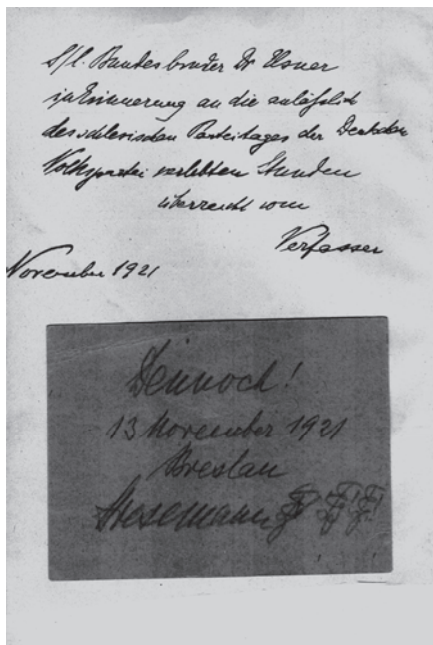 s/l. Bundesbruder Dr Elsner
in Erinnerung an die anläßlich
des schlesischen Parteitages der Deutschen
Volkspartei verlebten Stunden
überreicht vom
Verfasser
November 1921
Dennoch!
13 November 1921
Breslau
Stresemann